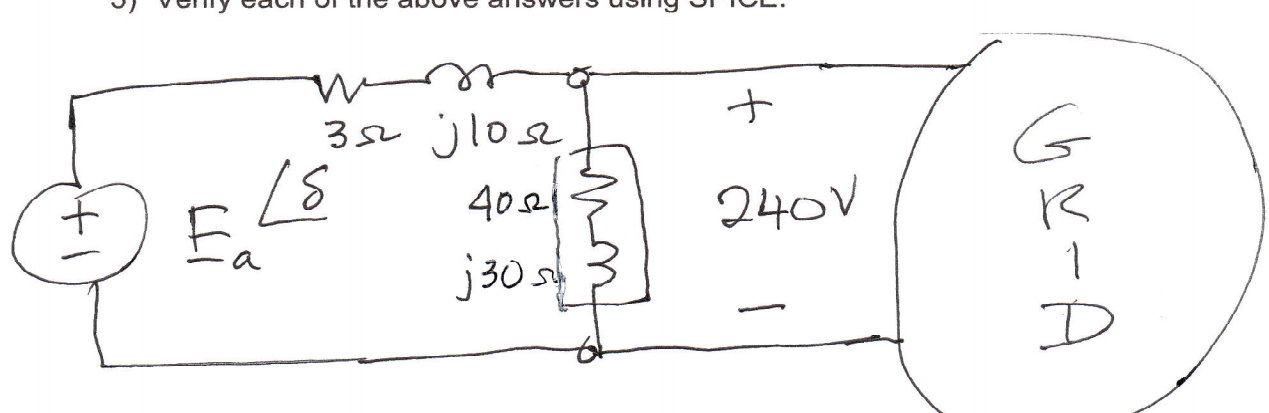 5) Verify each of the above answers using SPICE.
3Ω j10Ω
+
-
E_a ∠δ
40Ω
j30Ω
+
240V
-
G
R
I
D